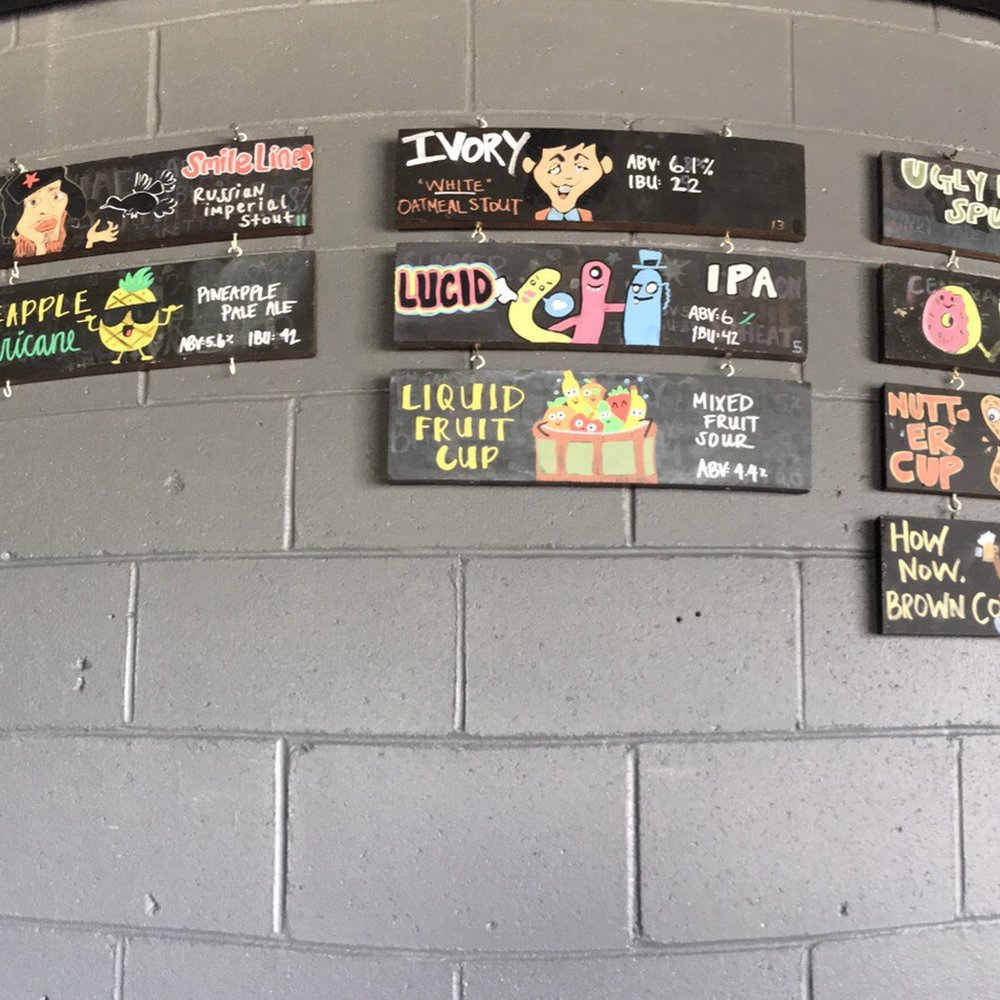 Smile Lines
Russian
imperial
Stout
11
APPLE
ricane
PINEAPPLE
PALE ALE
ABV: 5.6% IBU: 42
IVORY
"WHITE"
OATMEAL STOUT
ABV: 6.1%
IBU: 22
13
LUCID
IPA
ABV: 6%
IBU: 42
5
LIQUID
FRUIT
CUP
MIXED
FRUIT
SOUR
ABV: 4.4%
UGLY
SPU
NUTT-
ER
CUP
HOW
NOW.
BROWN CO